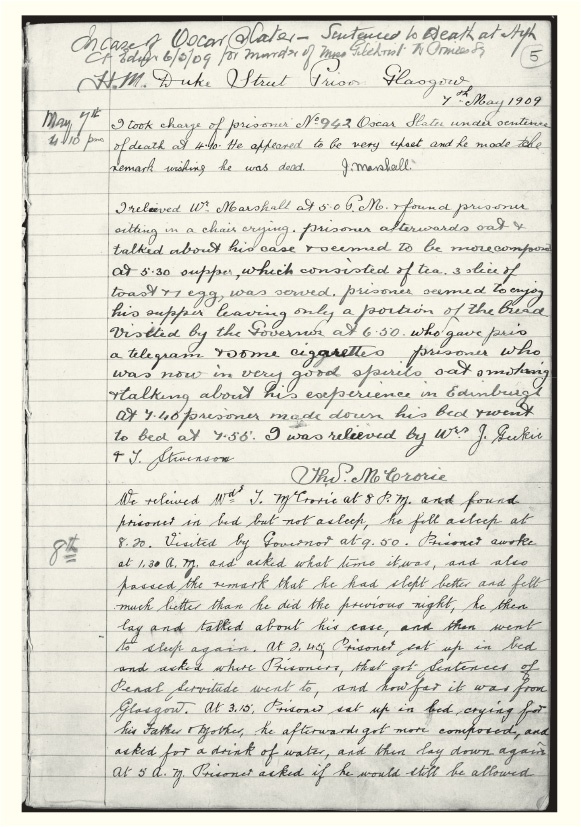 In case of Oscar Slater – Sentenced to Death at High
Ct Edinr 6/5/09 for murder of Miss Gilchrist
5
H.M. Duke Street Prison Glasgow
7th May 1909
May 7th
4.10 pm
I took charge of prisoner No 942 Oscar Slater under sentence
of death at 4.10. He appeared to be very upset and he made the
remark wishing he was dead. J. Marshall.
I relieved Wr. Marshall at 5.0 P.M. & found prisoner
sitting in a chair crying. prisoner afterwards sat &
talked about his case & seemed to be more composed
at 5.30 supper, which consisted of tea. 3 slice of
toast & 1 egg, was served. prisoner seemed to enjoy
his supper leaving only a portion of the bread
Visited by the Governor at 6.50. who gave pris
a telegram & some cigarettes prisoner who
was now in very good spirits sat smoking
& talking about his experience in Edinburgh
at 7.40 prisoner made down his bed & went
to bed at 7.55. I was relieved by Wrs J. Geikie
& T. Stevenson
Thos. McCrorie
We relieved Wdr T. McCrorie at 8 P.M. and found
prisoner in bed but not asleep, he fell asleep at
8th
8.20. Visited by Governor at 9.50. Prisoner awoke
at 1.30 A.M. and asked what time it was, and also
passed the remark that he had slept better and felt
much better than he did the previous night, he then
lay and talked about his case, and then went
to sleep again. At 2.45, Prisoner sat up in bed
and asked where Prisoners, that got Sentences of
Penal Servitude went to, and how far it was from
Glasgow. At 3.15, Prisoner sat up in bed crying for
his Father & Mother, he afterwards got more composed, and
asked for a drink of water, and then lay down again
At 5 A.M. Prisoner asked if he would still be allowed